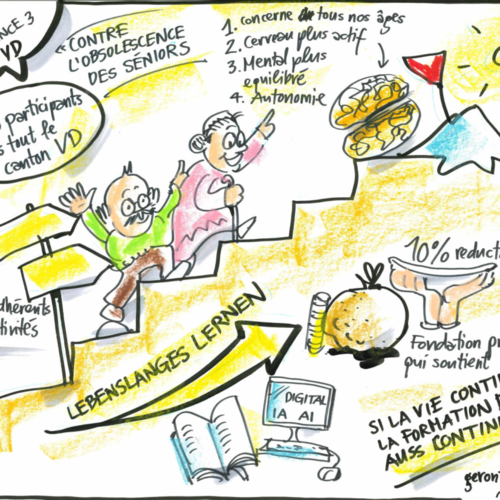 NCE 3
VD
« CONTRE
L'OBSOLESCENCE
DES SÉNIORS
1. concerne tous nos âges
2. Cerveau plus actif
3. Mental plus
equilibré
4. Autonomie
participants
tout le
canton VD
LEBENSLANGES LERNEN
DIGITAL
IA AI
10% reducti
Fondation
qui soutient
SI LA VIE CONTI
LA FORMATION
AUSS CONTIN
geron